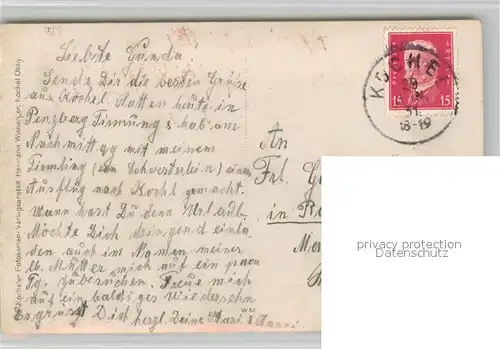 Liebste Gunda!
Sende Dir die besten Grüße
aus Kochel. Hatten heute in
Penzberg Firmung & hab am
Nachmittag mit meinem
Firmling (von Schwesterlein) einen
Ausflug nach Kochl gemacht.
Wann hast Du denn Urlaub.
Möchte Dich dringend einla
den auch im Namen meiner
lb. Mutter mich auf ein paar
Tg. zu besuchen. Freue mich
auf ein baldiges Wiedersehn
Es grüsst Dich herzl. Deine Mari &
An
Frl. G
in
KOCHEL
29
31
18-19
15 15
privacy protection
Datenschutz
Kocheler Fotokarten-Verlagsanstalt Hermann
Kochel Obby.
WM